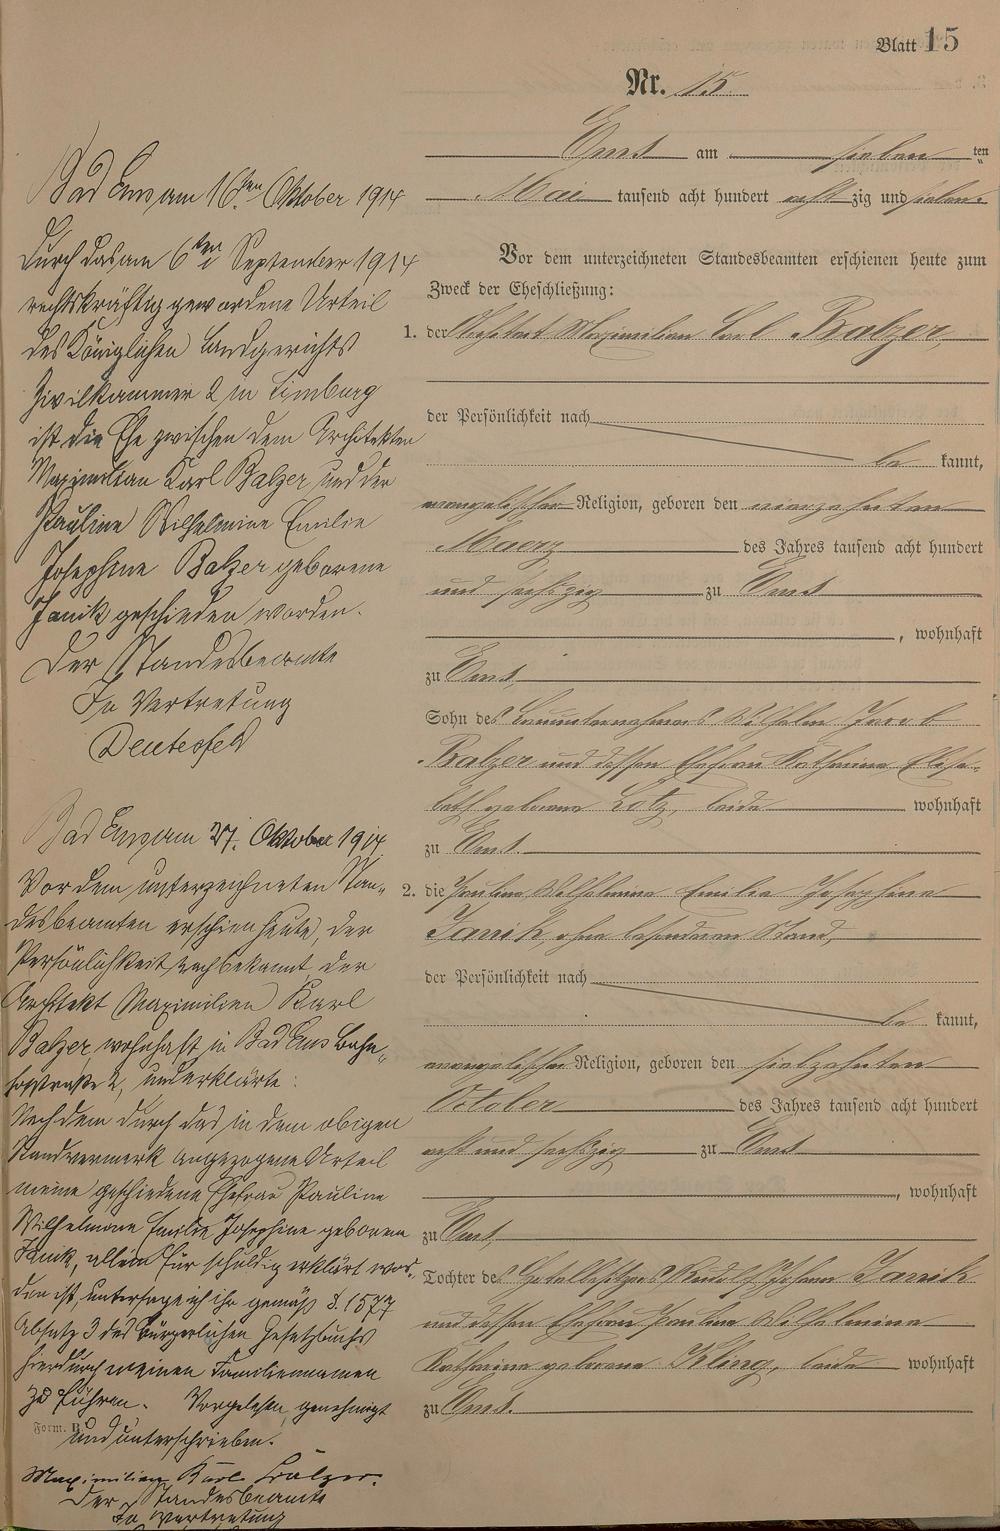 Blatt 15
Nr. 15.
Ems am sieben ten
Mai tausend acht hundert acht zig und sieben.
Vor dem unterzeichneten Standesbeamten erschienen heute zum
Zweck der Eheschließung:
1. der Architect Maximilian Carl Balzer,
der Persönlichkeit nach
be kannt,
evangelischer Religion, geboren den vierzehnten
Maerz des Jahres tausend acht hundert
und sechszig zu Ems
, wohnhaft
zu Ems,
Sohn des Bauunternehmers Wilhelm Jacob
Balzer und dessen Ehefrau Katharina Elisa-
beth geborene Lotz, beide wohnhaft
zu Ems.
2. die Pauline Wilhelmine Emilie Josephine
Janik, ohne besonderen Stand,
der Persönlichkeit nach
be kannt,
evangelischer Religion, geboren den siebzehnten
October des Jahres tausend acht hundert
acht und sechszig zu Ems
, wohnhaft
zu Ems,
Tochter des Hotelbesitzers Rudolf Johann Janik
und dessen Ehefrau Pauline Wilhelmine
Katharine geborene Kling, beide wohnhaft
zu Ems.
Bad Ems am 16ten Oktober 1914
Durch das am 6ten September 1914
rechtskräftig gewordene Urteil
des Königlichen Landgerichts
Zivilkammer 2 in Limburg
ist die Ehe zwischen dem Architekten
Maximilian Karl Balzer und der
Pauline Wilhelmine Emilie
Josephine Balzer geborene
Janik geschieden worden.
Der Standesbeamte
In Vertretung
Bad Ems am 27. Oktober 1914
Vor dem unterzeichneten Stan-
desbeamten erschien heute, der
Persönlichkeit nach bekannt, der
Architekt Maximilian Karl
Balzer, wohnhaft in Bad Ems Bahn-
hofstraße 2, und erklärte:
Nachdem durch das in dem obigen
Randvermerk angezogene Urteil
meine geschiedene Ehefrau Pauline
Wilhelmine Emilie Josephine geborene
Janik, allein für schuldig erklärt wor-
den ist, untersage ich ihr gemäß §. 1577
Absatz 3 des Bürgerlichen Gesetzbuchs
hierdurch meinen Familiennamen
zu führen. Vorgelesen, genehmigt
und unterschrieben.
Form. B
Maximilian Karl Balzer.
Der Standesbeamte
In Vertretung